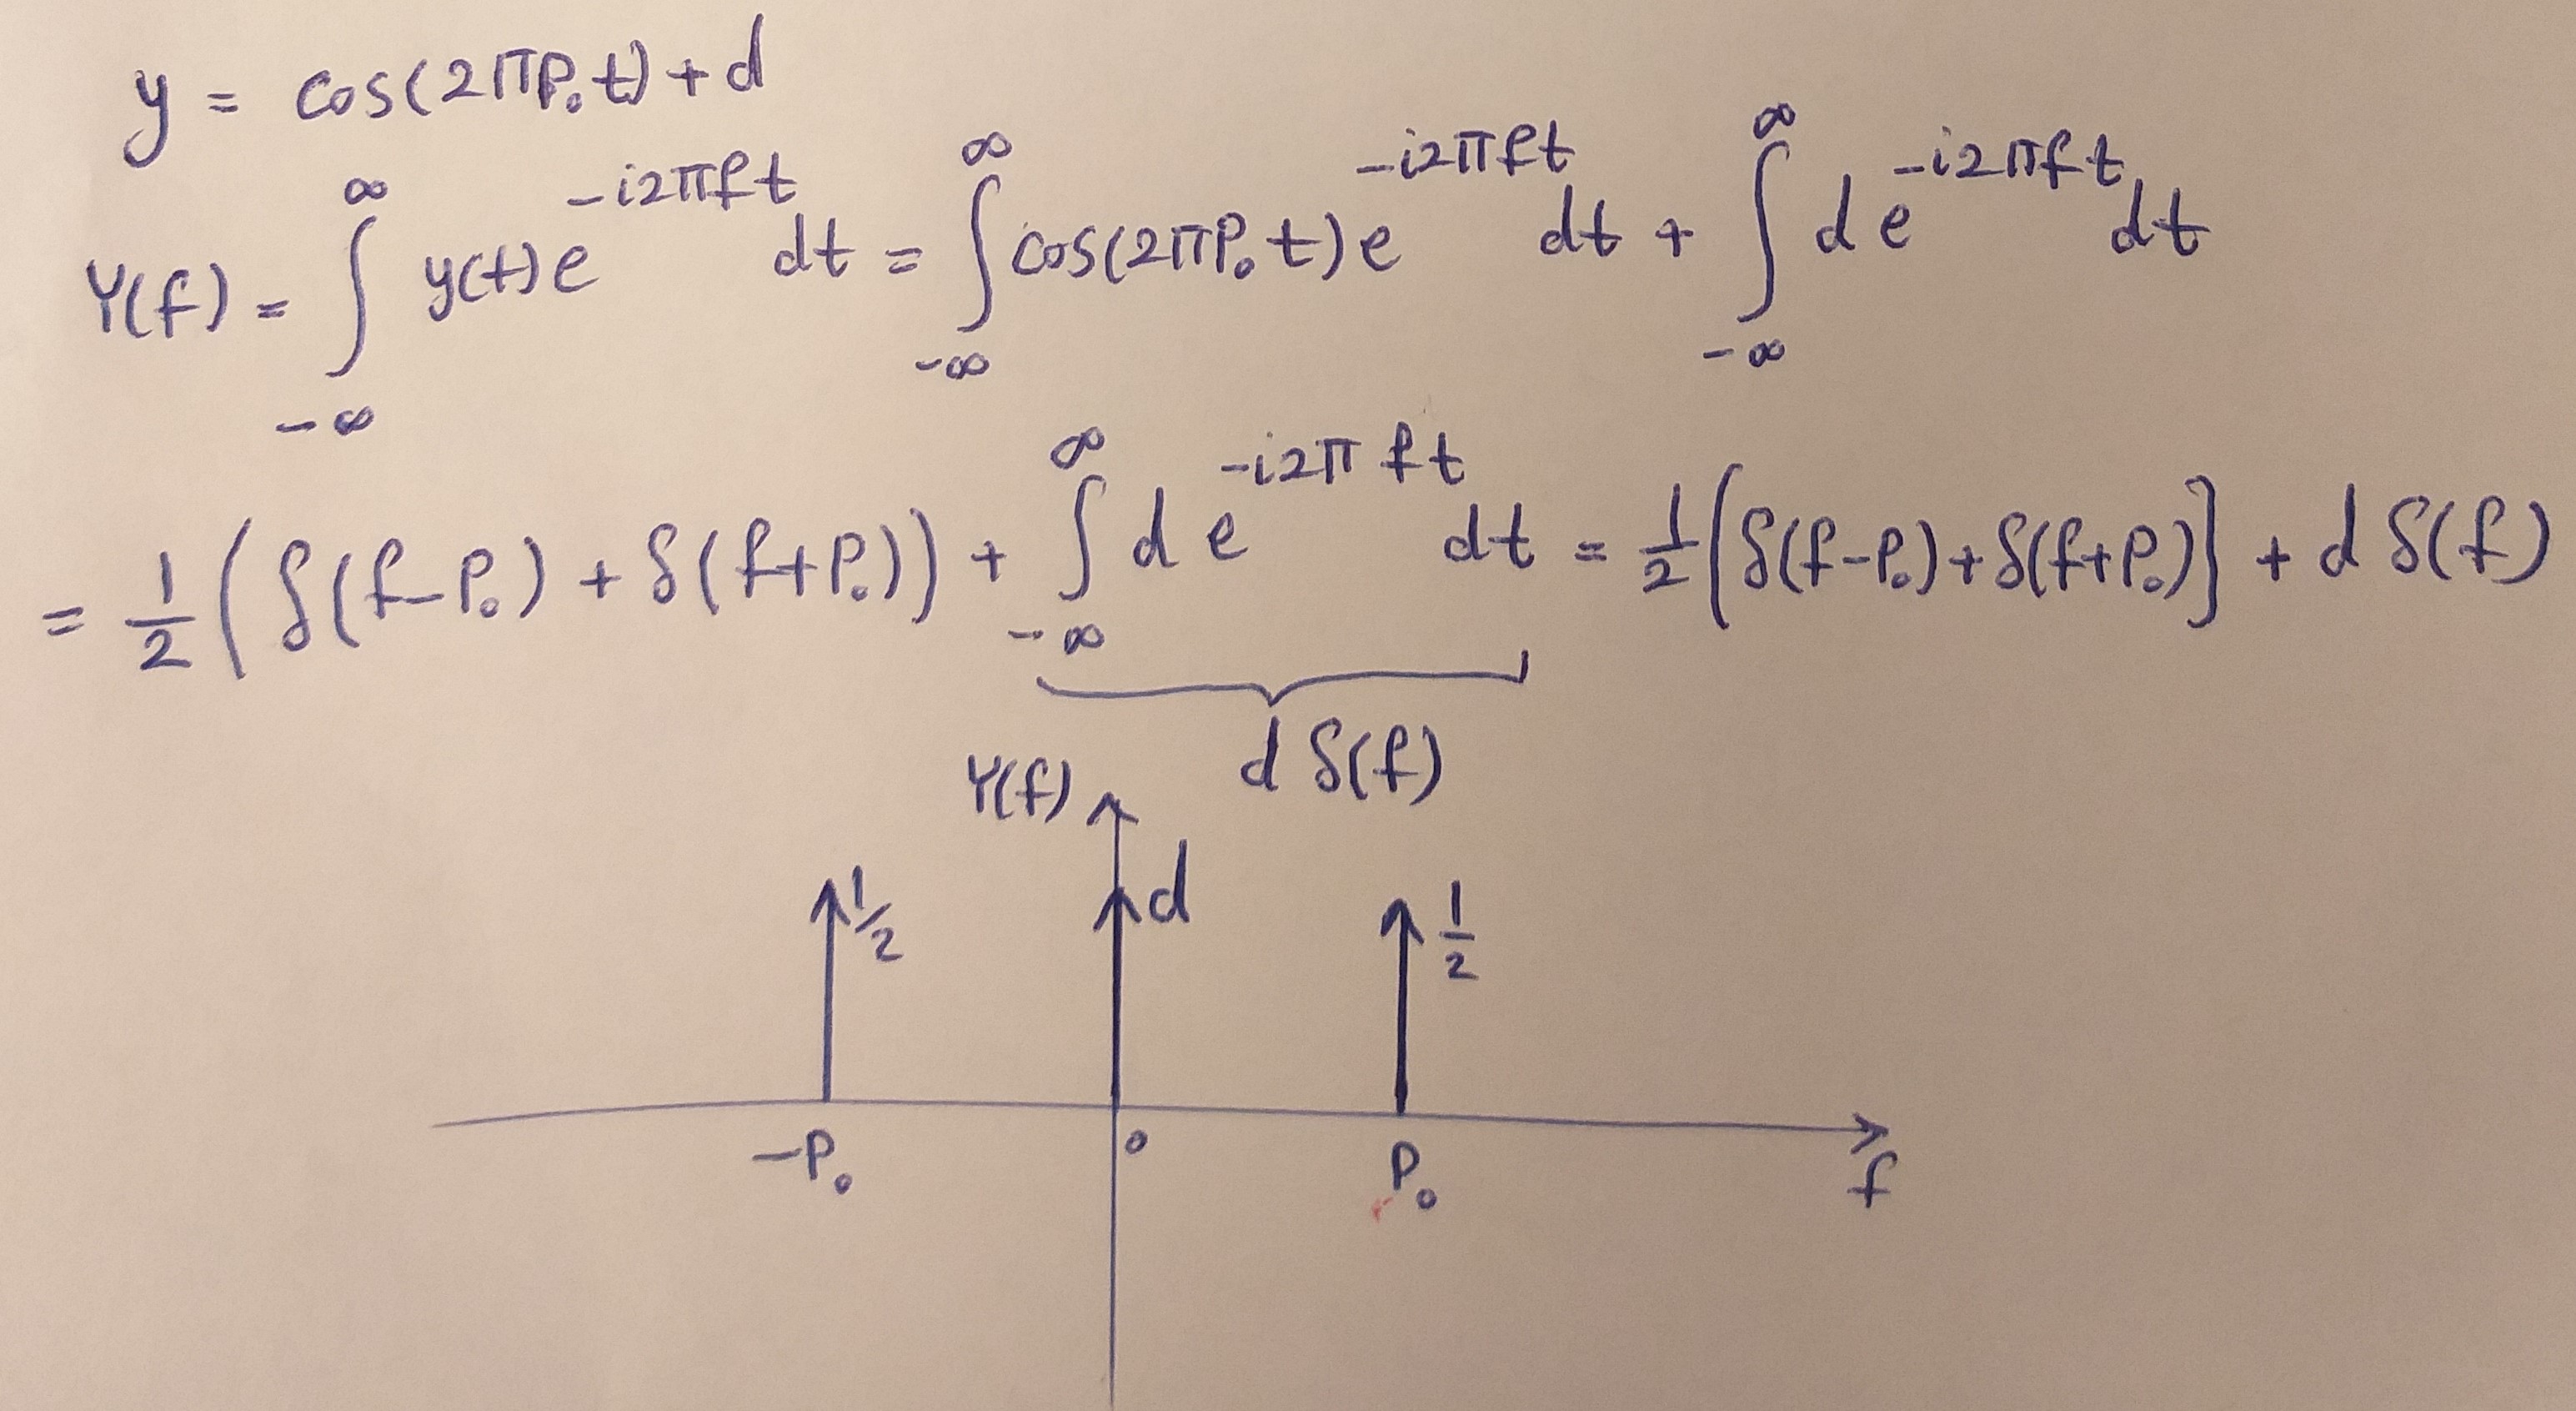 y = cos(2πp₀t) + d
Y(f) = ∫_{-∞}^{∞} y(t) e^{-i2πft} dt = ∫_{-∞}^{∞} cos(2πp₀t) e^{-i2πft} dt + ∫_{-∞}^{∞} d e^{-i2πft} dt
= 1/2 (δ(f-p₀) + δ(f+p₀)) + ∫_{-∞}^{∞} d e^{-i2πft} dt = 1/2 [δ(f-p₀) + δ(f+p₀)] + d δ(f)
d δ(f)
Y(f)
1/2 d 1/2
-p₀ 0 p₀ f